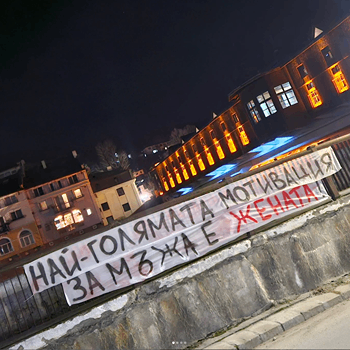 НАЙ-ГОЛЯМАТА МОТИВАЦИЯ
ЗА МЪЖА Е ЖЕНАТА!